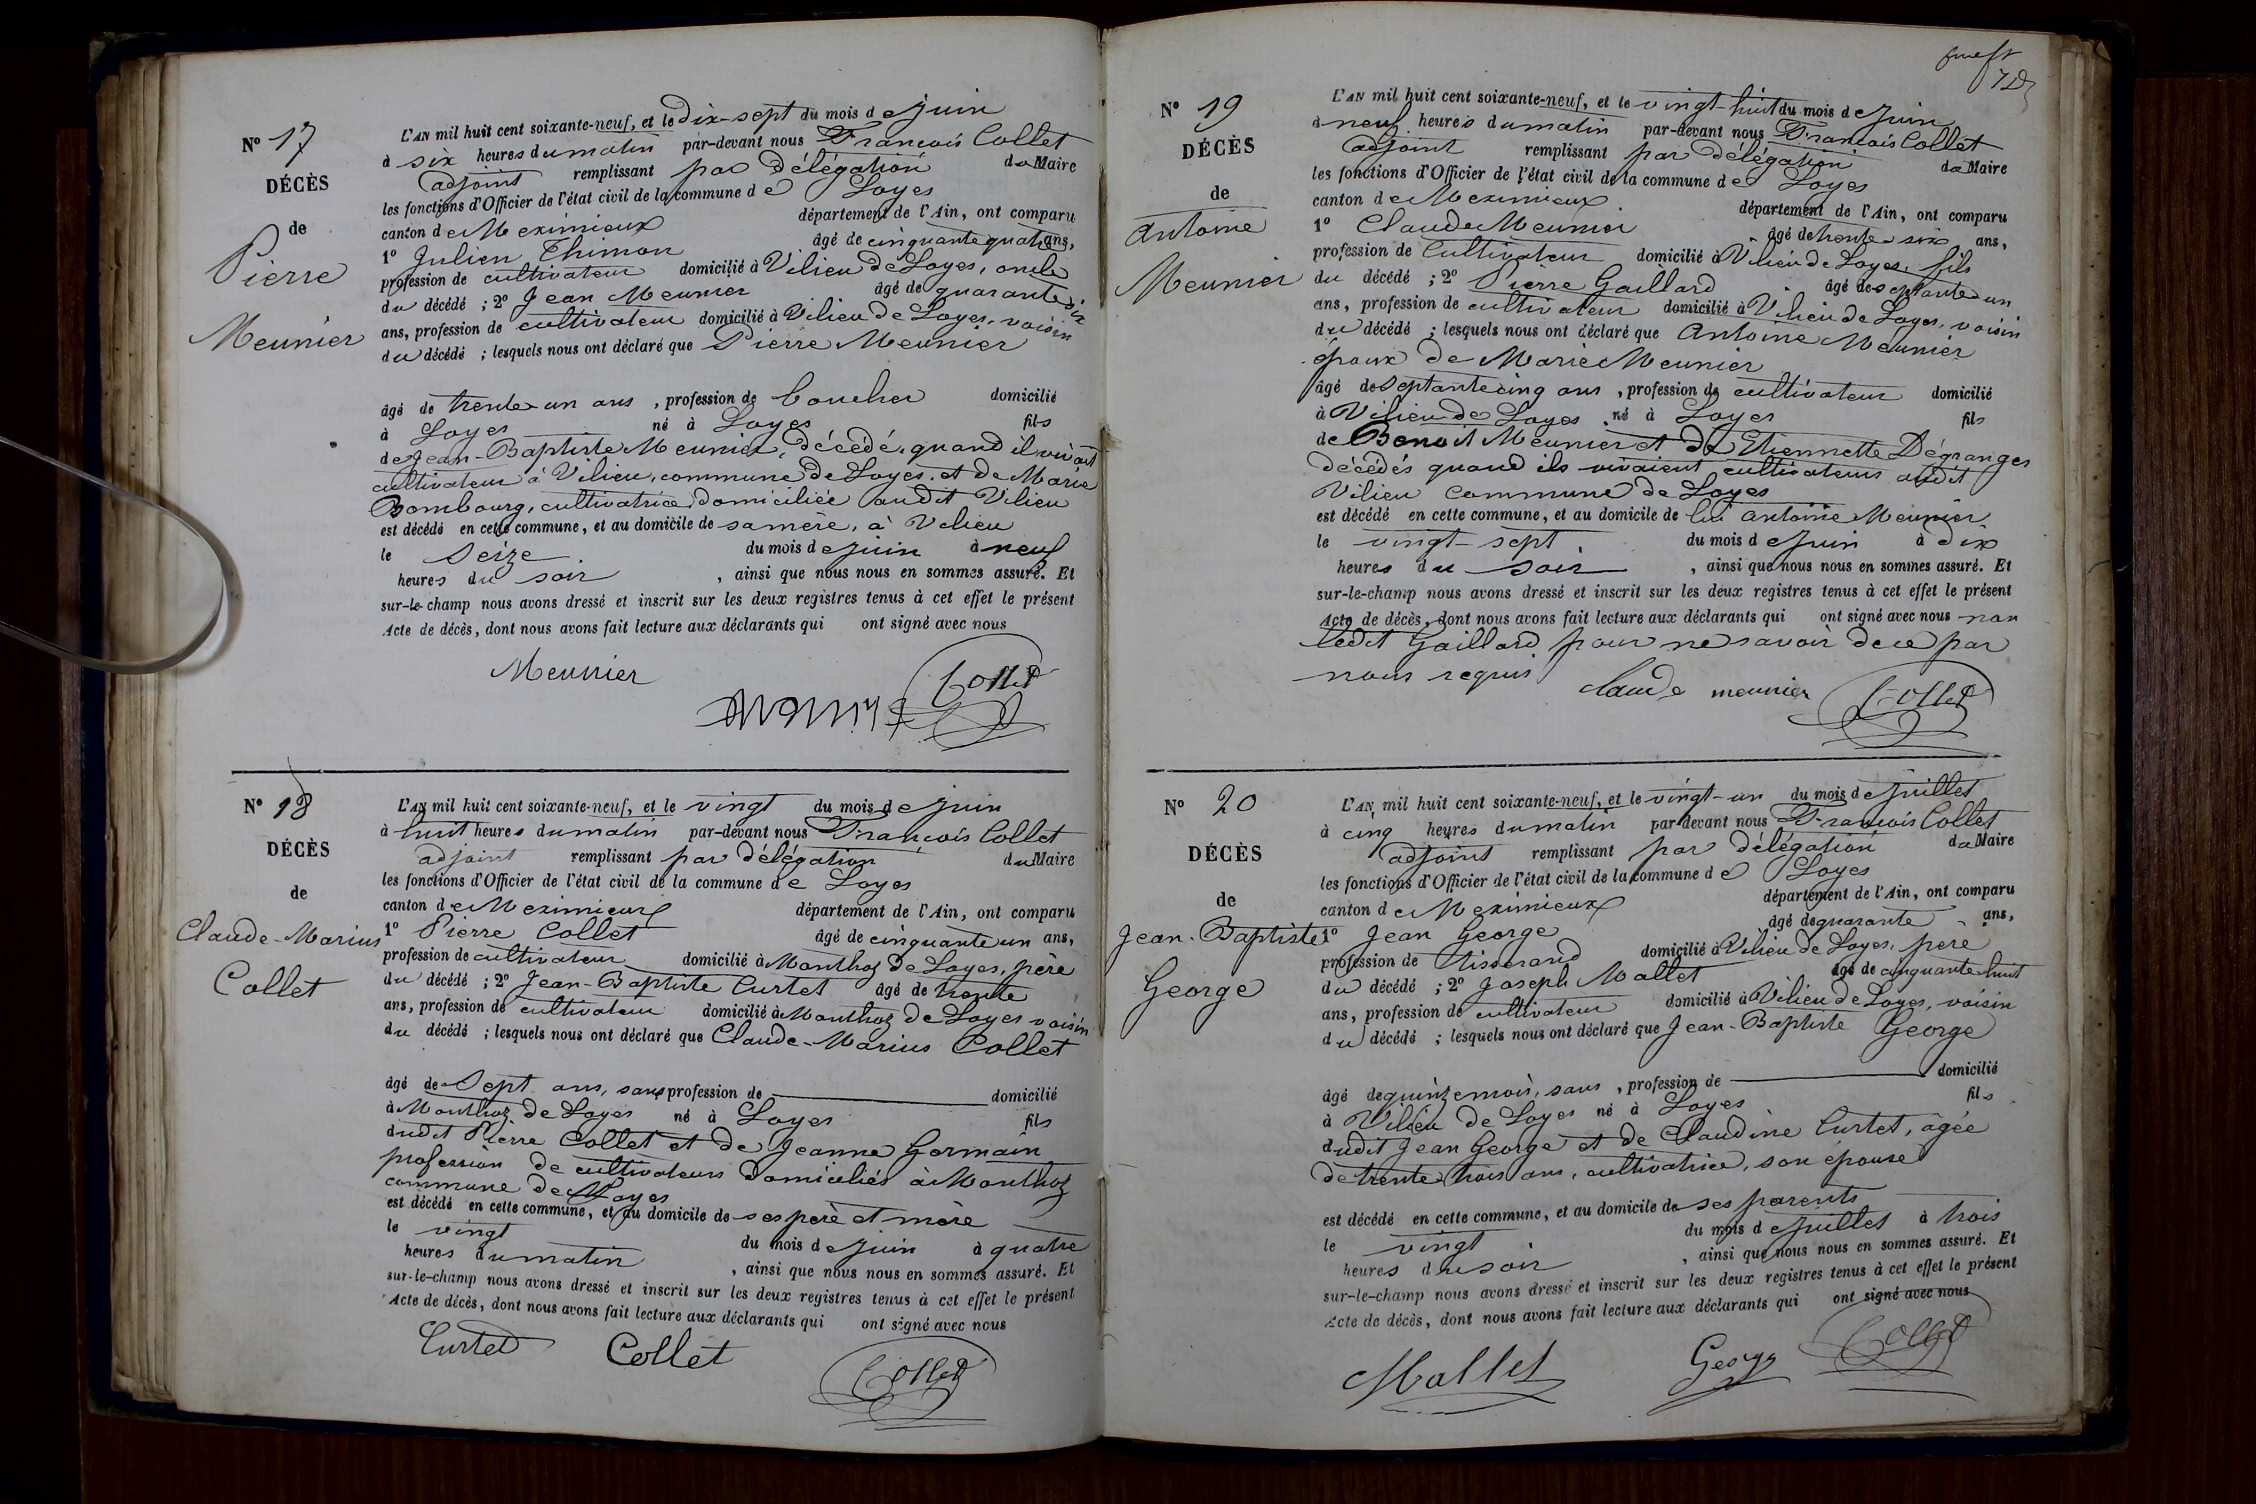 N° 17
DÉCÈS
de
Pierre
Meunier
L'AN mil huit cent soixante-neuf, et le dix-sept du mois de juin
à six heures du matin par-devant nous François Collet
adjoint remplissant par délégation du Maire
les fonctions d'Officier de l'état civil de la commune de Loyes
canton de Meximieux département de l'Ain, ont comparu
1° Julien Thimon âgé de cinquante quatre ans,
profession de cultivateur domicilié à Vilieu de Loyes, oncle
du décédé ; 2° Jean Meunier âgé de quarante six
ans, profession de cultivateur domicilié à Vilieu de Loyes, voisin
du décédé ; lesquels nous ont déclaré que Pierre Meunier
âgé de trente un ans , profession de boucher domicilié
à Loyes né à Loyes fils
de Jean-Baptiste Meunier, décédé, quand il vivait
cultivateur à Vilieu, commune de Loyes, et de Marie
Bombourg, cultivatrice, domiciliée audit Vilieu
est décédé en cette commune, et au domicile de sa mère, à Vilieu
le seize du mois de juin à neuf
heures du soir , ainsi que nous nous en sommes assuré. Et
sur-le-champ nous avons dressé et inscrit sur les deux registres tenus à cet effet le présent
Acte de décès, dont nous avons fait lecture aux déclarants qui ont signé avec nous
Meunier
Collet
N° 18
DÉCÈS
de
Claude-Marius
Collet
L'AN mil huit cent soixante-neuf, et le vingt du mois de juin
à huit heures du matin par-devant nous François Collet
adjoint remplissant par délégation du Maire
les fonctions d'Officier de l'état civil de la commune de Loyes
canton de Meximieux département de l'Ain, ont comparu
1° Pierre Collet âgé de cinquante un ans,
profession de cultivateur domicilié à Monthoz de Loyes, père
du décédé ; 2° Jean-Baptiste Curtet âgé de trente
ans, profession de cultivateur domicilié à Monthoz de Loyes voisin
du décédé ; lesquels nous ont déclaré que Claude-Marius Collet
âgé de sept ans, sans profession de domicilié
à Monthoz de Loyes né à Loyes fils
dudit Pierre Collet et de Jeanne Germain
profession de cultivateurs domiciliés à Monthoz
commune de Loyes
est décédé en cette commune, et au domicile de ses père et mère
le vingt du mois de juin à quatre
heures du matin , ainsi que nous nous en sommes assuré. Et
sur-le-champ nous avons dressé et inscrit sur les deux registres tenus à cet effet le présent
Acte de décès, dont nous avons fait lecture aux déclarants qui ont signé avec nous
Curtet Collet Collet
N° 19
DÉCÈS
de
Antoine
Meunier
L'AN mil huit cent soixante-neuf, et le vingt-huit du mois de juin
à neuf heures du matin par-devant nous François Collet
adjoint remplissant par délégation du Maire
les fonctions d'Officier de l'état civil de la commune de Loyes
canton de Meximieux département de l'Ain, ont comparu
1° Claude Meunier âgé de trente-six ans,
profession de cultivateur domicilié à Vilieu de Loyes, fils
du décédé ; 2° Pierre Gaillard âgé de septante un
ans, profession de cultivateur domicilié à Vilieu de Loyes, voisin
du décédé ; lesquels nous ont déclaré que Antoine Meunier
époux de Marie Meunier
âgé de septante cinq ans , profession de cultivateur domicilié
à Vilieu de Loyes né à Loyes fils
de Benoit Meunier et de Etiennette Dégranges
décédés quand ils vivaient cultivateurs audit
Vilieu commune de Loyes
est décédé en cette commune, et au domicile de lui Antoine Meunier
le vingt-sept du mois de juin à dix
heures du soir , ainsi que nous nous en sommes assuré. Et
sur-le-champ nous avons dressé et inscrit sur les deux registres tenus à cet effet le présent
Acte de décès, dont nous avons fait lecture aux déclarants qui ont signé avec nous non
ledit Gaillard pour ne savoir de ce par
nous requis
claude meunier Collet
N° 20
DÉCÈS
de
Jean-Baptiste
George
L'AN mil huit cent soixante-neuf, et le vingt-un du mois de juillet
à cinq heures du matin par-devant nous François Collet
adjoint remplissant par délégation du Maire
les fonctions d'Officier de l'état civil de la commune de Loyes
canton de Meximieux département de l'Ain, ont comparu
1° Jean George âgé de quarante ans,
profession de Tisserand domicilié à Vilieu de Loyes, père
du décédé ; 2° Joseph Mallet âgé de cinquante huit
ans, profession de cultivateur domicilié à Vilieu de Loyes, voisin
du décédé ; lesquels nous ont déclaré que Jean-Baptiste George
âgé de quinze mois, sans , profession de domicilié
à Vilieu de Loyes né à Loyes fils
dudit Jean George et de Claudine Curtet, âgée
de trente trois ans, cultivatrice, son épouse
est décédé en cette commune, et au domicile de ses parents
le vingt du mois de juillet à trois
heures du soir , ainsi que nous nous en sommes assuré. Et
sur-le-champ nous avons dressé et inscrit sur les deux registres tenus à cet effet le présent
Acte de décès, dont nous avons fait lecture aux déclarants qui ont signé avec nous
Mallet George Collet